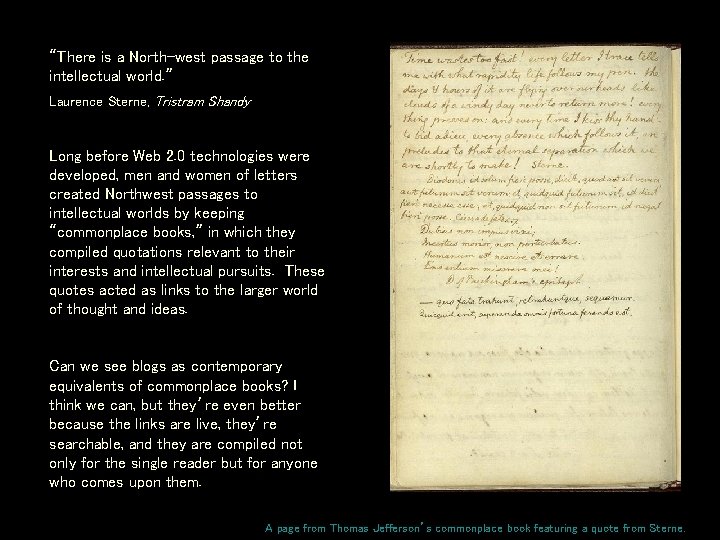 “There is a North-west passage to the
intellectual world.”
Laurence Sterne, Tristram Shandy
Long before Web 2.0 technologies were
developed, men and women of letters
created Northwest passages to
intellectual worlds by keeping
“commonplace books,” in which they
compiled quotations relevant to their
interests and intellectual pursuits. These
quotes acted as links to the larger world
of thought and ideas.
Can we see blogs as contemporary
equivalents of commonplace books? I
think we can, but they’re even better
because the links are live, they’re
searchable, and they are compiled not
only for the single reader but for anyone
who comes upon them.
Time wastes too fast! every letter I trace tells
me with what rapidity life follows my pen. the
days & hours of it are flying over our heads like
clouds of a windy day never to return more! every
thing presses on: and every time I kiss thy hand
to bid adieu, every absence which follows it, are
preludes to that eternal separation which we
are shortly to make! Sterne.
id solum fieri posse, dicit, quod aut sit verum
aut futurum sit verum et, quidquid futurum sit, id dicit
fieri necesse esse, et, quidquid non sit futurum, id negat
fieri posse.
Dubius non improbus vixi;
Incertus morior, non perturbatus.
Humanum est nescire et errare.
Ens entium miserere mei!
epitaph.
— quo fata trahunt, retrahuntque, sequamur.
Quicquid erit, superanda omnis fortuna ferendo est.
A page from Thomas Jefferson’s commonplace book featuring a quote from Sterne.